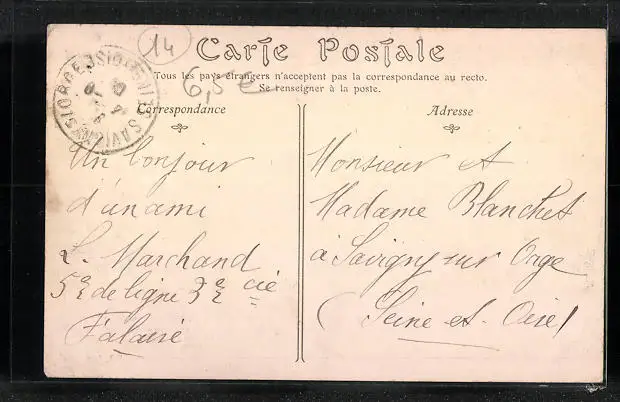 14
Carte Postale
Tous les pays étrangers n'acceptent pas la correspondance au recto.
Se renseigner à la poste.
6,5 €
Correspondance
Un bonjour
d'un ami
L. Marchand
5e de ligne 3e cie
Falaise
Adresse
Monsieur et
Madame Blanchet
à Savigny sur Orge
(Seine et-Oise)